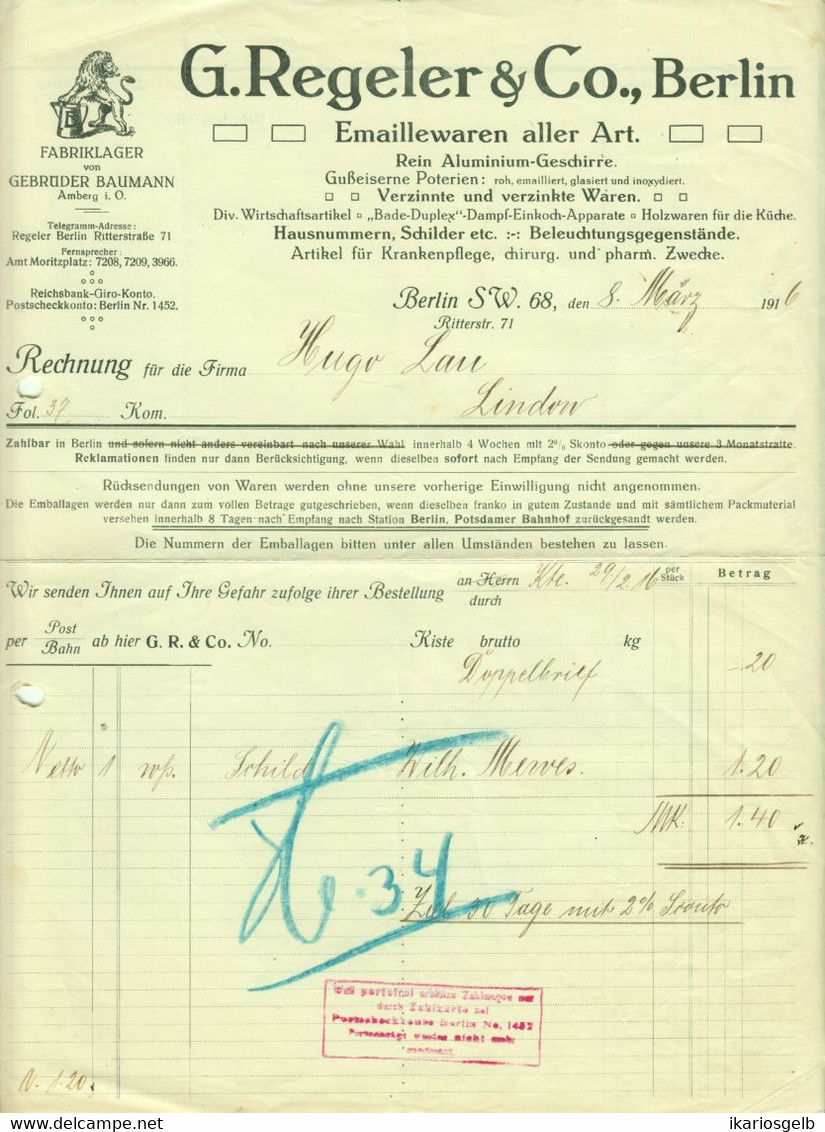 G. Regeler & Co., Berlin
Emaillewaren aller Art.
Rein Aluminium-Geschirre.
Gußeiserne Poterien: roh, emailliert, glasiert und inoxydiert.
Verzinnte und verzinkte Waren.
Div. Wirtschaftsartikel ▫ „Bade-Duplex“-Dampf-Einkoch-Apparate ▫ Holzwaren für die Küche.
Hausnummern, Schilder etc. :-: Beleuchtungsgegenstände.
Artikel für Krankenpflege, chirurg. und pharm. Zwecke.
FABRIKLAGER
von
GEBRÜDER BAUMANN
Amberg i. O.
Telegramm-Adresse:
Regeler Berlin Ritterstraße 71
Fernsprecher:
Amt Moritzplatz: 7208, 7209, 3966.
Reichsbank-Giro-Konto.
Postscheckkonto: Berlin Nr. 1452.
Berlin SW. 68, den 8. März 1916
Ritterstr. 71
Rechnung für die Firma Hugo Lau
Fol. 37 Kom. Lindow
Zahlbar in Berlin und sofern nicht anders vereinbart nach unserer Wahl innerhalb 4 Wochen mit 2% Skonto oder gegen unsere 3 Monatstratte.
Reklamationen finden nur dann Berücksichtigung, wenn dieselben sofort nach Empfang der Sendung gemacht werden.
Rücksendungen von Waren werden ohne unsere vorherige Einwilligung nicht angenommen.
Die Emballagen werden nur dann zum vollen Betrage gutgeschrieben, wenn dieselben franko in gutem Zustande und mit sämtlichem Packmaterial
versehen innerhalb 8 Tagen nach Empfang nach Station Berlin, Potsdamer Bahnhof zurückgesandt werden.
Die Nummern der Emballagen bitten unter allen Umständen bestehen zu lassen.
Wir senden Ihnen auf Ihre Gefahr zufolge ihrer Bestellung an Herrn durch Kte. 29/2.16 per Stück Betrag
per Post Bahn ab hier G. R. & Co. No. Kiste brutto kg
Doppelbrief -.20
Netto 1 Schild Wilh. Mewes. 1.20
MK. 1.40
34
Ziel 30 Tage mit 2% Sconto
durch Zahlkarte auf
Postscheckkonto Berlin No. 1452
werden nicht mehr
N. 1.20.
ikariosgelb